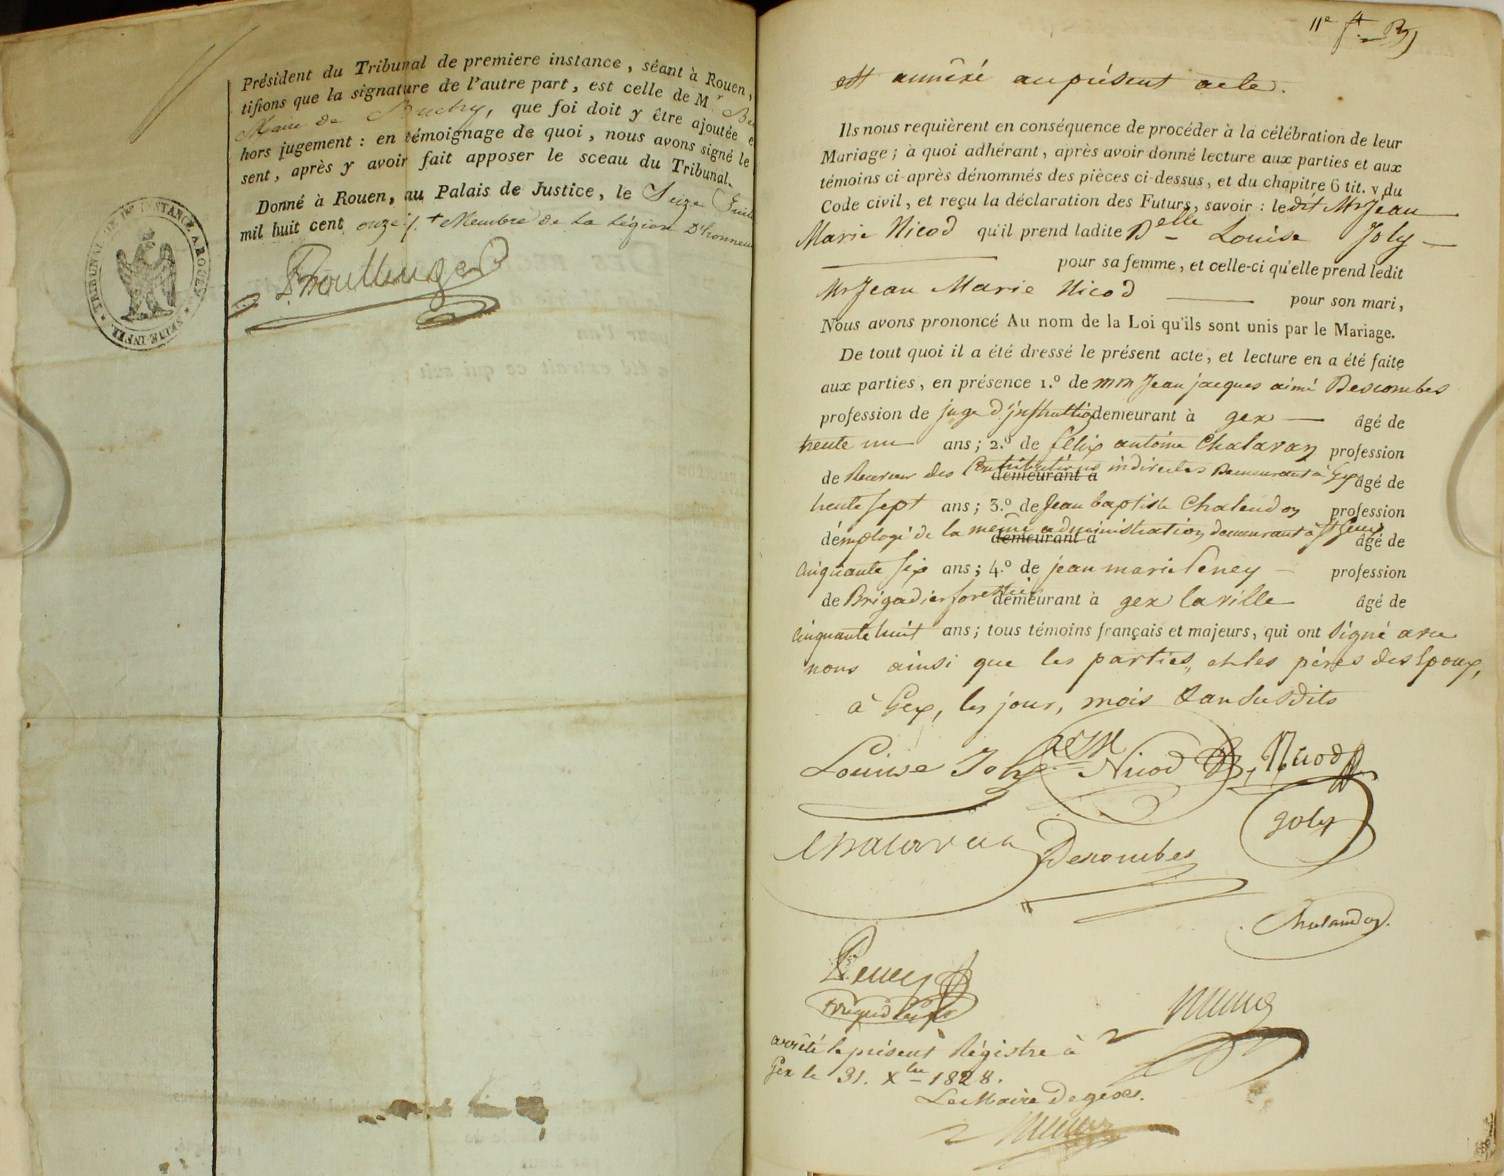 Président du Tribunal de premiere instance, séant à Rouen,
tifions que la signature de l'autre part, est celle de Mr
Maire de Buchy, que foi doit y être ajoutée e
hors jugement : en témoignage de quoi, nous avons signé le
sent, après y avoir fait apposer le sceau du Tribunal.
Donné à Rouen, au Palais de Justice, le Seize
mil huit cent onze /. + Membre de la Légion D'honneur
TRIBUNAL DE INSTANCE A ROUEN
SEINE INFRE.
11e ft
est annéxé au présent acte.
Ils nous requièrent en conséquence de procéder à la célébration de leur
Mariage ; à quoi adhérant, après avoir donné lecture aux parties et aux
témoins ci-après dénommés des pièces ci-dessus, et du chapitre 6 tit. v du
Code civil, et reçu la déclaration des Futurs, savoir : le dit Mr Jean
Marie Nicod qu'il prend ladite Delle Louise Joly
pour sa femme, et celle-ci qu'elle prend ledit
Mr Jean Marie Nicod pour son mari,
Nous avons prononcé Au nom de la Loi qu'ils sont unis par le Mariage.
De tout quoi il a été dressé le présent acte, et lecture en a été faite
aux parties, en présence 1.º de mm Jean jacques aimé Descombes
profession de juge d'jnstruction demeurant à gex âgé de
trente un ans ; 2.º de félix antoine Chalavan profession
de Receveur des Contributions indirectes demeurant à Gex demeurant à âgé de
trente sept ans ; 3.º de Jean baptiste Chalendon profession
d'émploye de la meme administration demeurant à St Genis demeurant à âgé de
cinquante six ans ; 4.º de jean marie Peney profession
de Brigadier forestier demeurant à gex la ville âgé de
cinquante huit ans ; tous témoins français et majeurs, qui ont signé avec
nous ainsi que les parties, et les péres des Epoux,
à Gex, les jour, mois & an susdits
Louise Joly JM Nicod Nicod
joly
Chalavan Descombes
Chalandon
Peney
arrêté le présent Régistre à
Gex le 31. Xbre 1828.
Le Maire De gex.